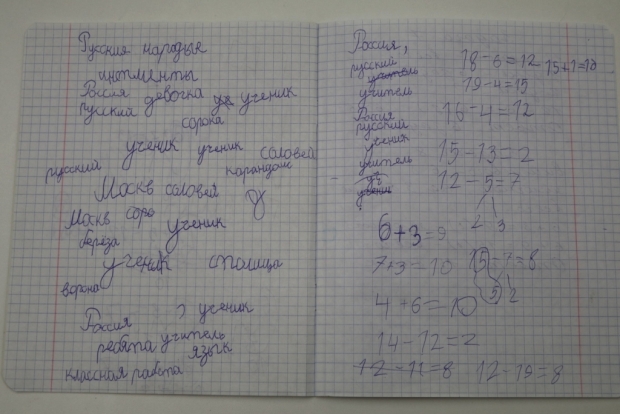 Русския народые
инстменты
Россия девочка уч ученик
русский
сорока
ученик ученик соловей
русский карандаш
Москв соловей
Москв соро ученик
береза
ученик столица
ворона
Россия ученик
ребята учитель
язык
классная работа
Россия,
русский
учитель
учитель
Россия
русский
ученик
учитель
уч
18-6=12 15+1=18
19-4=15
16-4=12
15-13=2
12-5=7
2 3
6+3=9
7+3=10 15-7=8
5 2
4+6=10
14-12=2
12-11=8 12-19=8